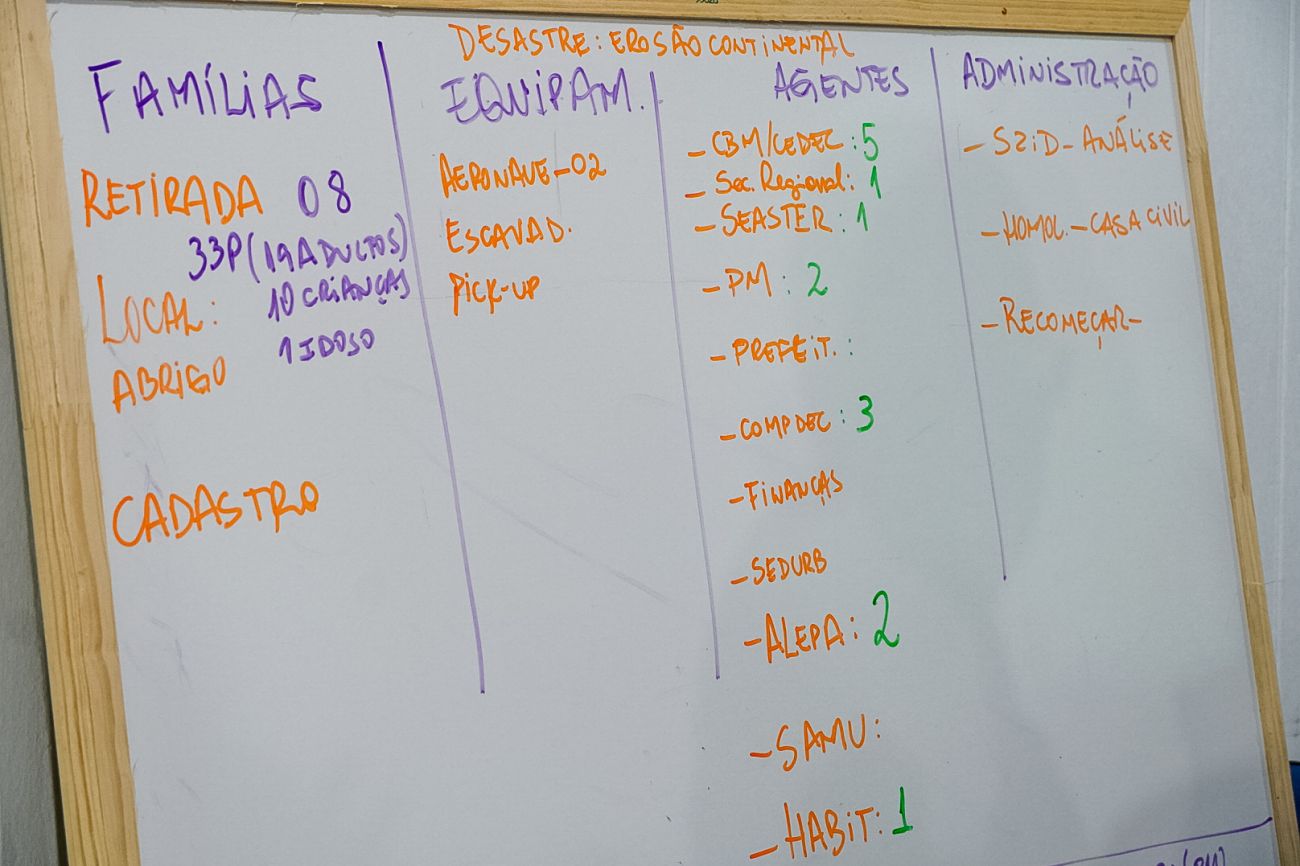 DESASTRE: EROSÃO CONTINENTAL
FAMÍLIAS
RETIRADA 08
33P (19 ADULTOS)
10 CRIANÇAS
1 IDOSO
LOCAL:
ABRIGO
CADASTRO
EQUIPAM.
AERONAVE-02
ESCAVAD.
PICK-UP
AGENTES
- CBM/CEDEC: 5
- Sec. Regional: 1
- SEASTER: 1
- PM: 2
- PREFEIT.:
- COMPDEC: 3
- FINANÇAS
- SEDURB
- ALEPA: 2
- SAMU:
- HABIT: 1
ADMINISTRAÇÃO
- S2iD - ANÁLISE
- HOMOL. - CASA CIVIL
- RECOMEÇAR -